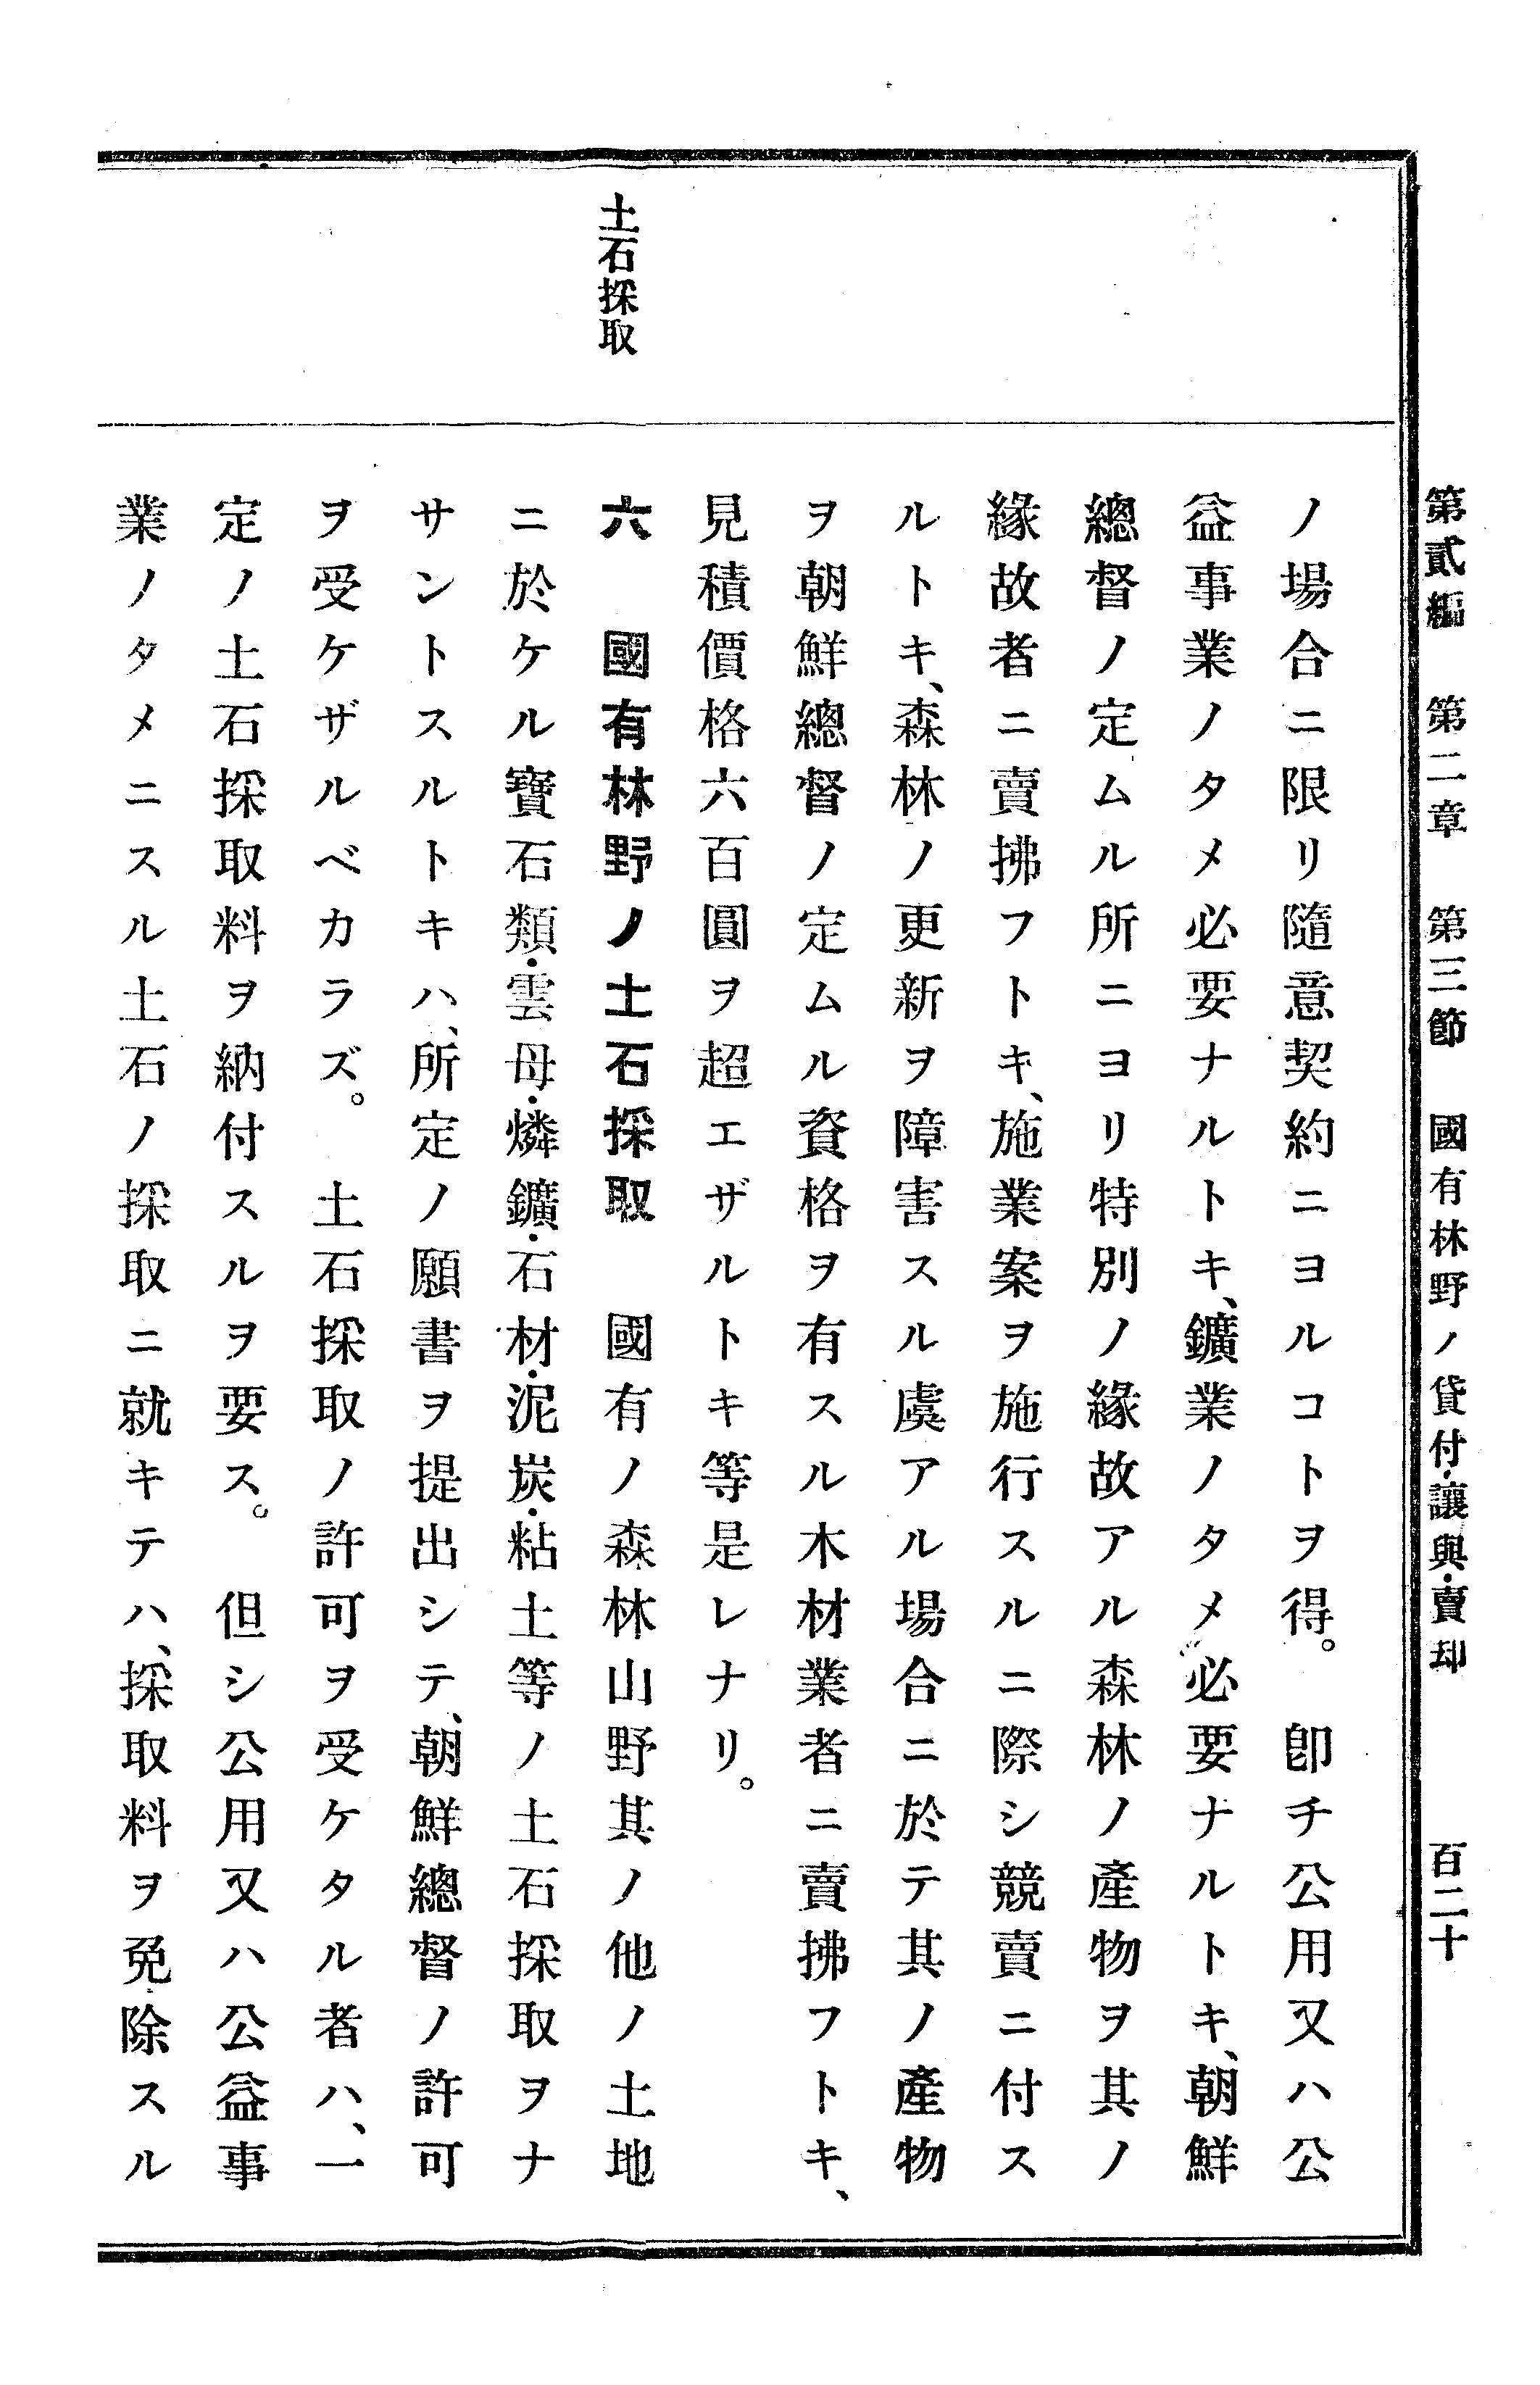 第貳編　第二章　第三節　國有林野ノ貸付・讓與・賣却　百二十
ノ場合ニ限リ隨意契約ニヨルコトヲ得。　卽チ公用又ハ公
益事業ノタメ必要ナルトキ、鑛業ノタメ必要ナルトキ、朝鮮
總督ノ定ムル所ニヨリ特別ノ緣故アル森林ノ產物ヲ其ノ
緣故者ニ賣拂フトキ、施業案ヲ施行スルニ際シ競賣ニ付ス
ルトキ、森林ノ更新ヲ障害スル虞アル場合ニ於テ其ノ產物
ヲ朝鮮總督ノ定ムル資格ヲ有スル木材業者ニ賣拂フトキ、
見積價格六百圓ヲ超エザルトキ等是レナリ。
土石採取
六　國有林野ノ土石採取　國有ノ森林山野其ノ他ノ土地
ニ於ケル寶石類・雲母・燐鑛・石材・泥炭・粘土等ノ土石採取ヲナ
サントスルトキハ、所定ノ願書ヲ提出シテ、朝鮮總督ノ許可
ヲ受ケザルベカラズ。　土石採取ノ許可ヲ受ケタル者ハ、一
定ノ土石採取料ヲ納付スルヲ要ス。　但シ公用又ハ公益事
業ノタメニスル土石ノ採取ニ就キテハ、採取料ヲ免除スル